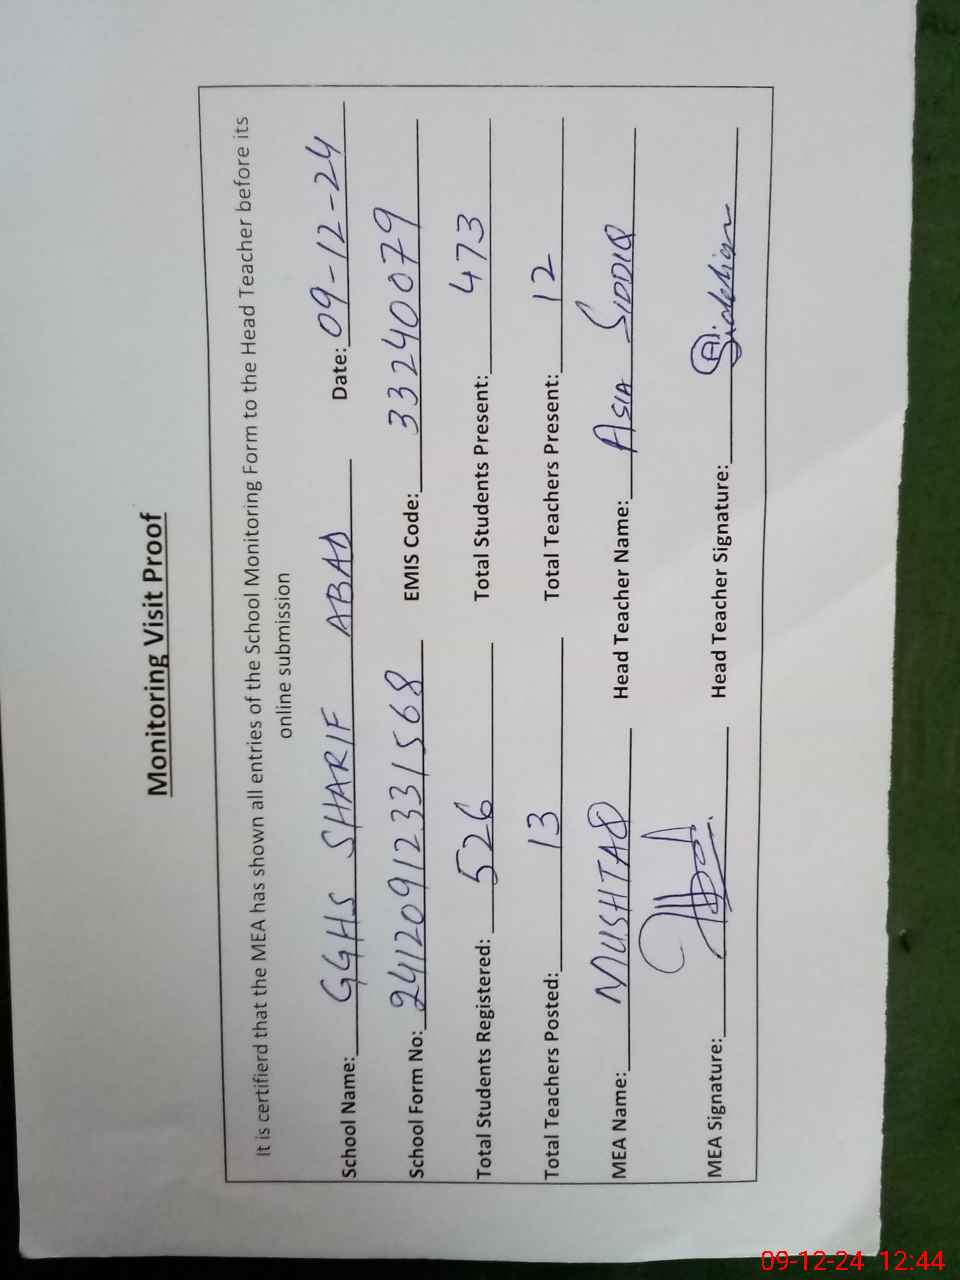 Monitoring Visit Proof
It is certifierd that the MEA has shown all entries of the School Monitoring Form to the Head Teacher before its
online submission
School Name: GGHS SHARIF ABAD Date: 09-12-24
School Form No: 24120912331568 EMIS Code: 33240079
Total Students Registered: 526 Total Students Present: 473
Total Teachers Posted: 13 Total Teachers Present: 12
MEA Name: MUSHTAQ Head Teacher Name: ASIA SIDDIQ
MEA Signature: Head Teacher Signature:
09-12-24 12:44